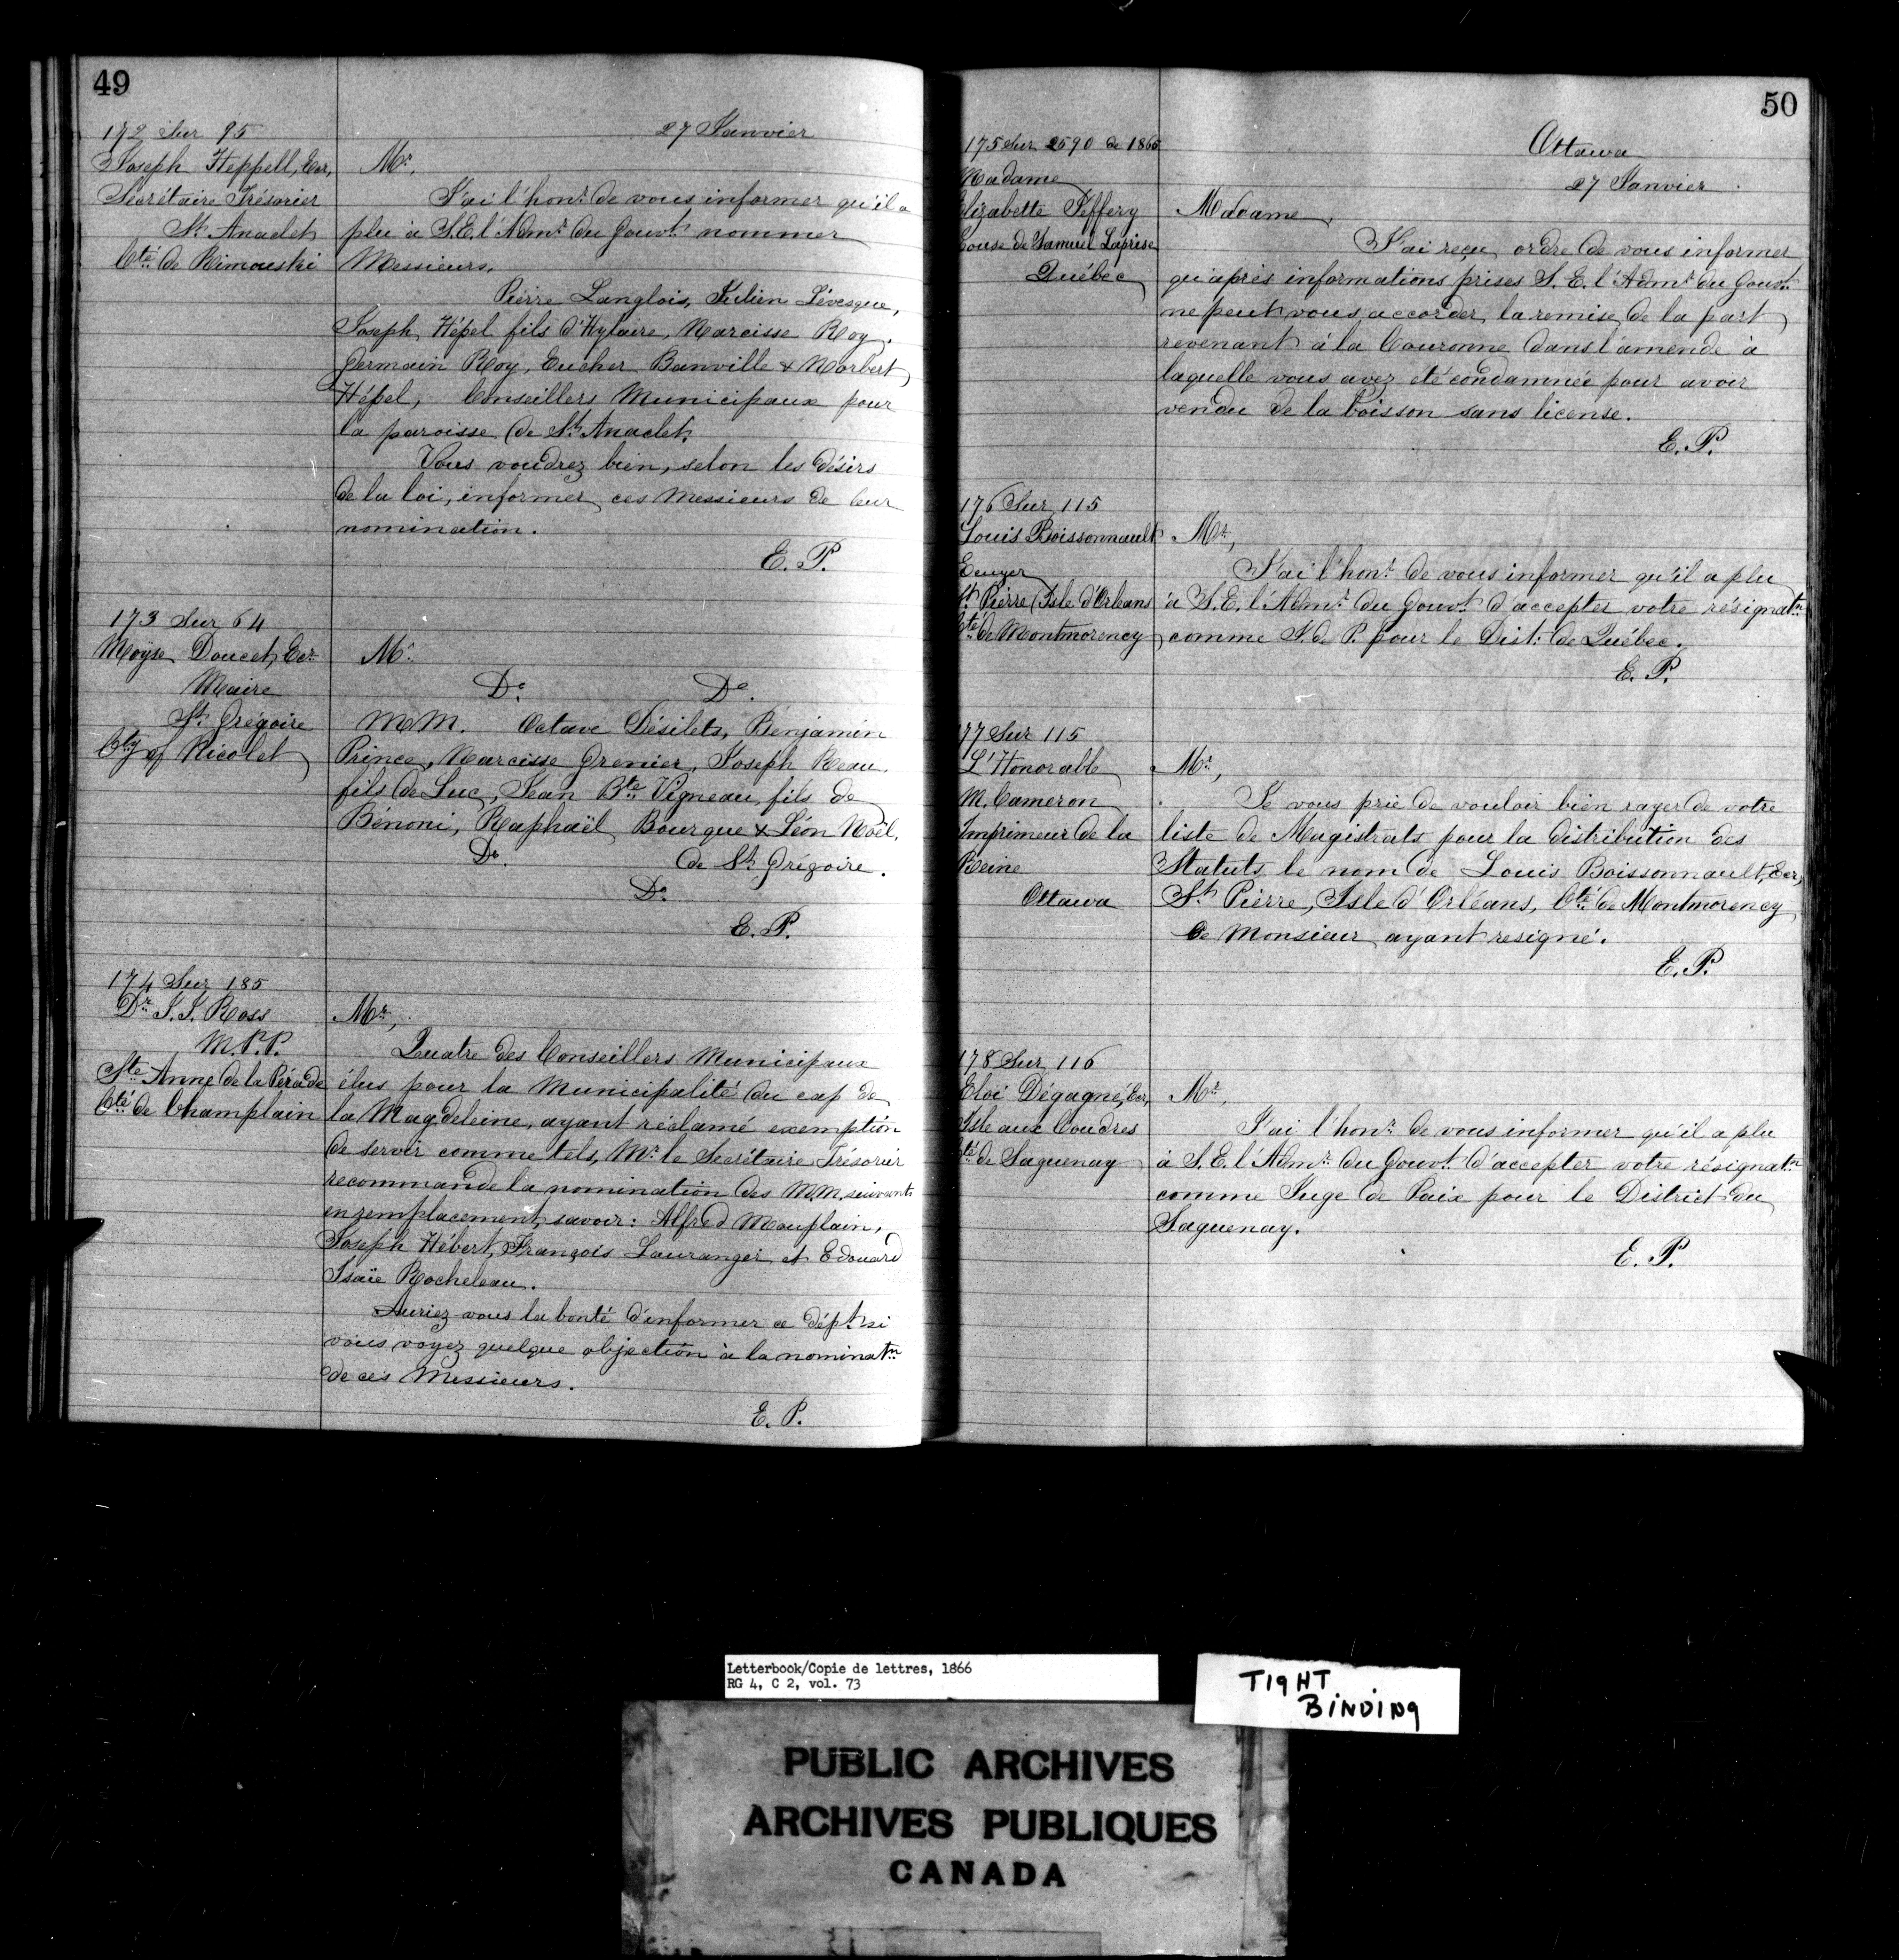 49
27 Janvier
172 Sur 95
Joseph Heppell, Ecr,
Secrétaire Trésorier
St Anaclet
Cté de Rimouski
Mr,
J'ai l'honr. de vous informer qu'il a
plu à S.E. l'Admr. du Gouvt. nommer
Messieurs,
Pierre Langlois, Julien Lévesque,
Joseph Hépel fils d'Hylaire, Narcisse Roy,
Germain Roy, Eucher Banville & Norbert
Hépel, Conseillers Municipaux pour
la paroisse de St Anaclet.
Vous voudrez bien, selon les désirs
de la loi, informer ces Messieurs de leur
nomination.
E. P.
173 Sur 64
Moÿse Doucet, Ecr
Maire
St Grégoire
Cty of Nicolet
Mr.
Do. Do.
MM. Octave Désilets, Benjamin
Prince, Narcisse Grenier, Joseph Reau,
fils de Luc, Jean Bte Vigneau, fils de
Bénoni, Raphaël Bourque & Léon Noël,
Do. de St Grégoire.
Do.
E. P.
174 Sur 185
Dr J. J. Ross
M.P.P.
Ste Anne de la Pérade
Cté de Champlain
Mr,
Quatre des Conseillers Municipaux
élus pour la Municipalité du cap de
la Magdeleine, ayant réclamé exemption
de servir comme tels, Mr le Secrétaire Trésorier
recommande la nomination des M.M. suivants
en remplacement, savoir: Alfred Mouplain,
Joseph Hébert, François Lauranger et Edouard
Isaïe Rocheleau.
Auriez vous la bonté d'informer ce dépt. si
vous voyez quelque objection à la nominatn
de ces Messieurs.
E. P.
50
Ottawa
27 Janvier
175 Sur 2590 de 1865
Madame
Elizabette Jeffery
Epouse de Samuel Laprise
Québec
Madame,
J'ai reçu ordre de vous informer
qu'après informations prises S. E. l'Admr. du Gouvt.
ne peut vous accorder la remise de la part
revenant à la Couronne dans l'amende à
laquelle vous avez été condamnée pour avoir
vendu de la boisson sans license.
E. P.
176 Sur 115
Louis Boissonnault
Ecuyer
St Pierre Isle d'Orleans
Cté de Montmorency
Mr,
J'ai l'honr. de vous informer qu'il a plu
à S.E. l'Admr. du Gouvt. d'accepter votre résignatn
comme J. de P. pour le Dist: de Québec.
E. P.
177 Sur 115
L'Honorable
M. Cameron
Imprimeur de la
Reine
Ottawa
Mr,
Je vous prie de vouloir bien rayer de votre
liste de Magistrats pour la distribution des
Statuts le nom de Louis Boissonnault, Ecr,
St Pierre, Isle d'Orléans, Cté de Montmorency
Ce Monsieur ayant resigné.
E. P.
178 Sur 116
Eloi Dégagné, Ecr,
Isle aux Coudres
Cté de Saguenay
Mr,
J'ai l'honr. de vous informer qu'il a plu
à S.E. l'Admr. du Gouvt. d'accepter votre résignatn
comme Juge de Paix pour le District du
Saguenay.
E. P.
Letterbook/Copie de lettres, 1866
RG 4, C 2, vol. 73
TIGHT
BINDING
PUBLIC ARCHIVES
ARCHIVES PUBLIQUES
CANADA